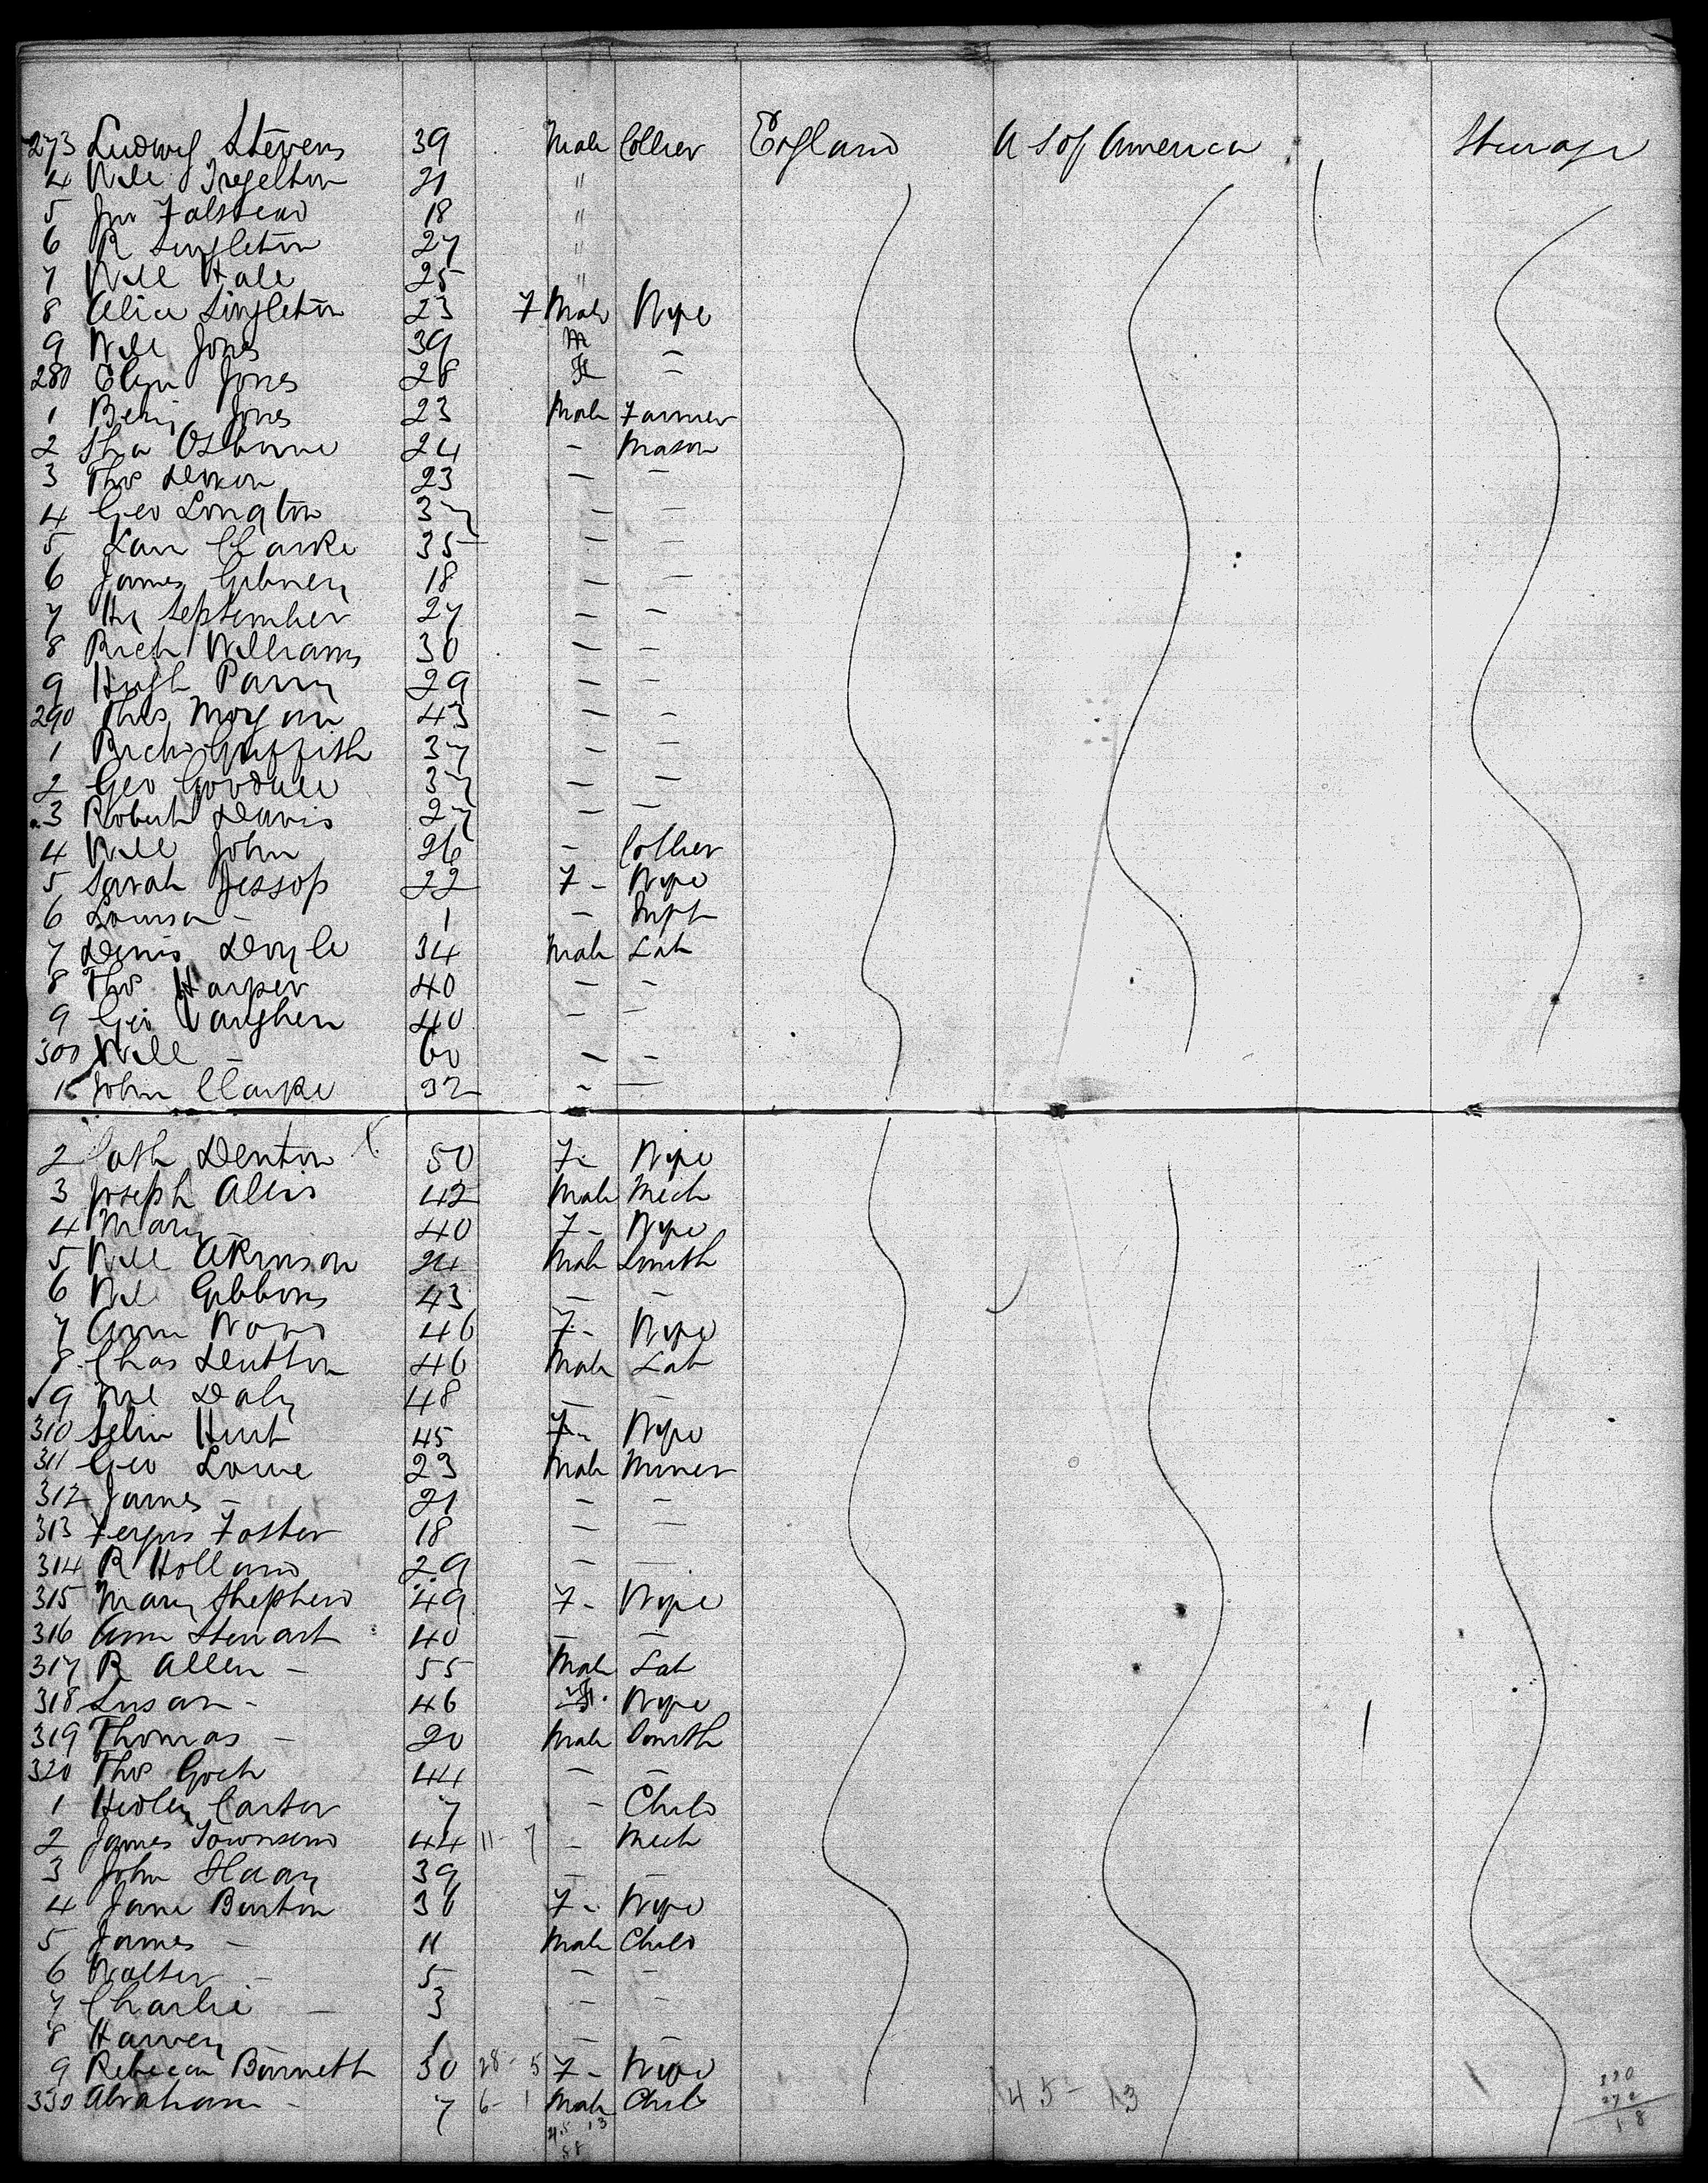 273 Ludwig Stevens 39 Male Collier England U S of America Steerage
4 Will Tregelton 21 "
5 Jno Falstead 18 "
6 R Singleton 27 "
7 Will Hall 25 "
8 Alice Singleton 23 F Male Wife
9 Will Jones 39 M —
280 Elyn Jones 28 Fe —
1 Benj Jones 23 Male Farmer
2 Osborne 24 - Mason
3 Thos Dixon 23 — —
4 Geo Longton 37 — —
5 Sam Clarke 35 — —
6 James Gibney 18 — —
7 Hy September 27 — —
8 Rich Williams 30 — —
9 Hugh Parry 29 — —
290 Thos Morgan 43 — —
1 Richd Griffith 37 — —
2 Geo Goodall 37 — —
3 Robert Davis 27 — —
4 Will John 26 - Collier
5 Sarah Jessop 22 F - Wife
6 Louisa — 1 — Inft
7 Denis Doyle 34 Male Lab
8 Thos Harper 40 — —
9 Geo Vaughen 40 — —
300 Will — 60 — —
1 John Clarke 32 - —
2 Cath Denton 50 F- Wife
3 Joseph Allis 42 Male Mech
4 Mary — 40 F - Wife
5 Will Atkinson 24 Male Smith
6 Wil Gibbons 43 — —
7 Ann Ward 46 F - Wife
8 Chas Dutton 46 Male Lab
9 Wil Daly 48 — —
310 Selin Hurt 45 F- Wife
311 Geo Lowe 23 Male Miner
312 James — 21 — —
313 Fergus Foster 18 — —
314 R Holland 29 — —
315 Mary Shepherd 49 F - Wife
316 Ann Stewart 40 — —
317 R Allen — 55 Male Lab
318 Susan - 46 F. Wife
319 Thomas — 20 Male Smith
320 Thos Goch 44 — —
1 Hedley Carter 7 - Child
2 James Townsend 44 11- 7 - Mech
3 John Slaay 39 — —
4 Jane Burton 36 F - Wife
5 James — 11 Male Child
6 Walter — 5 — —
7 Charlie — 3 — —
8 Harvey 1 — —
9 Rebecca Barnett 30 28- 5 F - Wife
330 Abraham - 7 6- 1 Male Child 45- 13
45 13
58
330
272
58